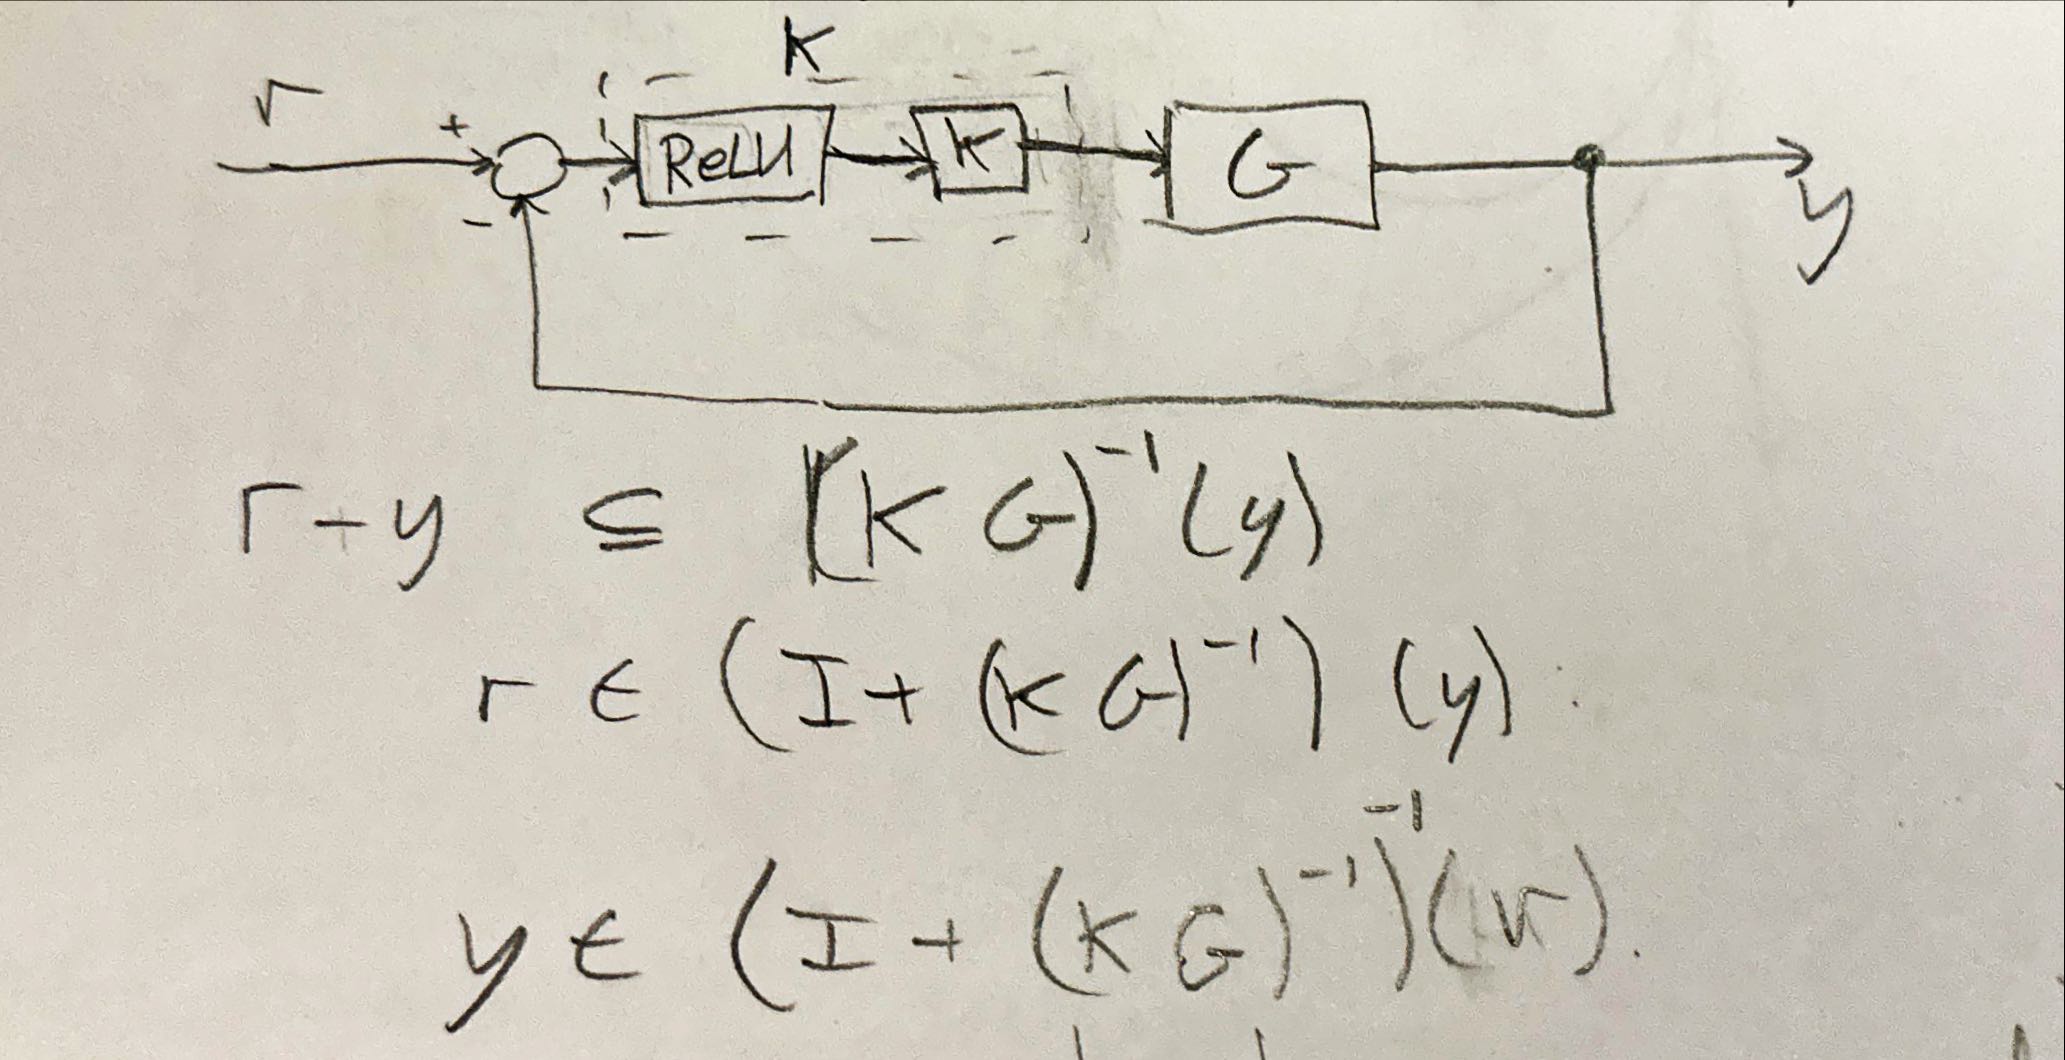 K
r + ReLU K G
- y
r - y ⊆ (K G)⁻¹ (y)
r ∈ (I + (K G)⁻¹) (y).
y ∈ (I + (K G)⁻¹)⁻¹ (r).